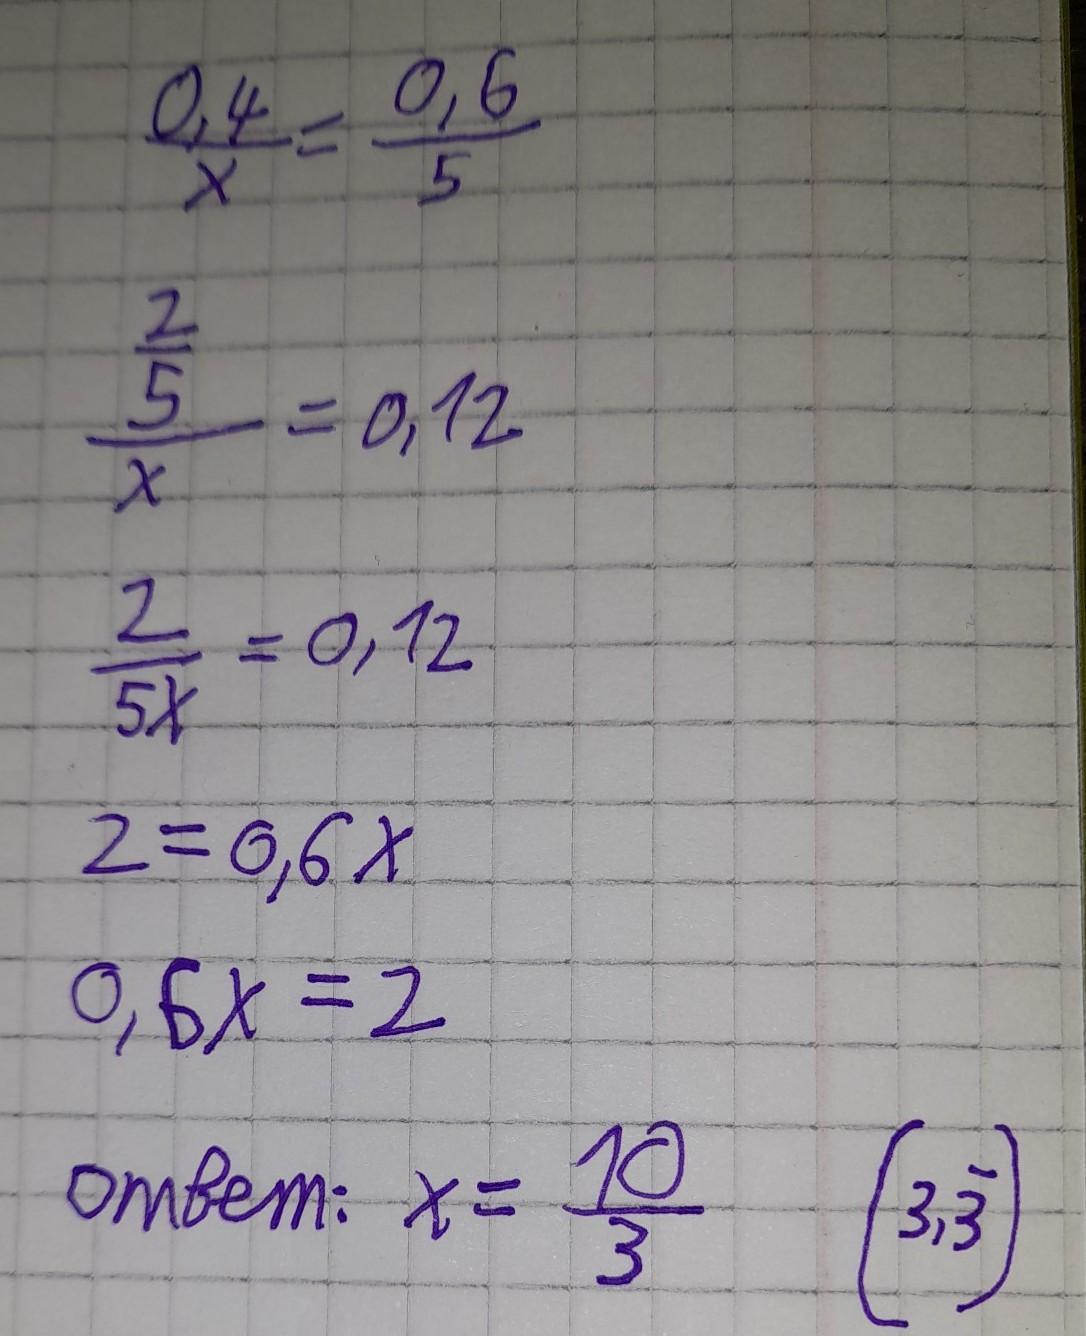 0,4/x = 0,6/5
2/5/x = 0,12
2/5x = 0,12
2 = 0,6x
0,6x = 2
ответ: x = 10/3 (3,3̅)